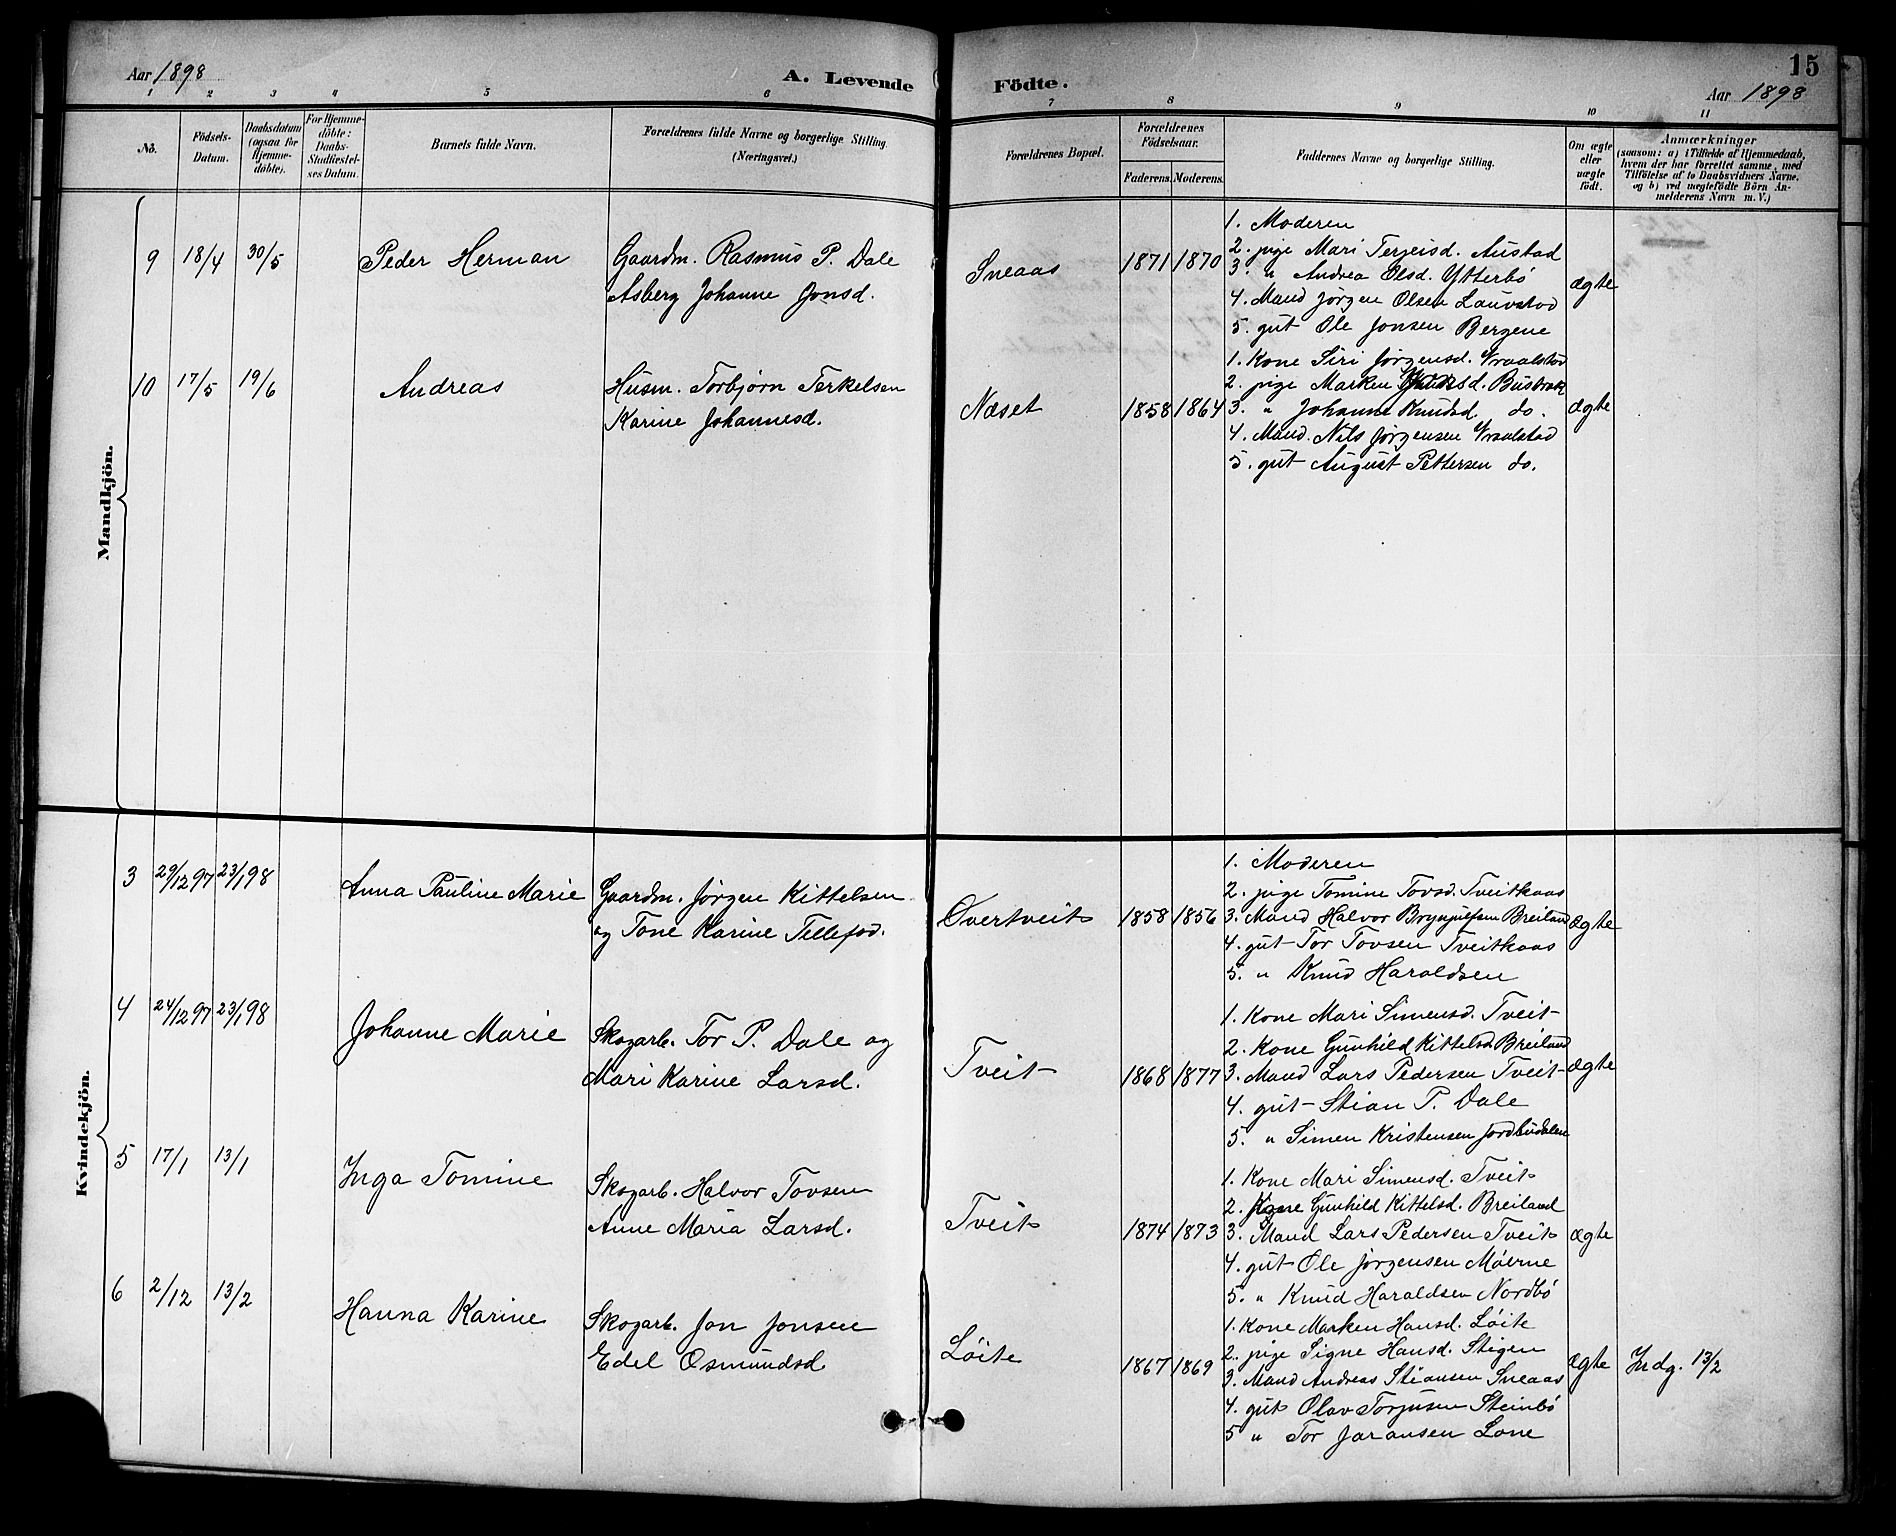 Aar 1898
A. Levende Födte.
15
Aar 1898
1 2 3 4 5 6 7 8 9 10 11
No.
Födsels-Datum.
Daabsdatum (ogsaa for Hjemme-döbte).
For Hjemme-döbte: Daabs-Stadfæstel-ses Datum.
Barnets fulde Navn.
Forældrenes fulde Navne og borgerlige Stilling (Næringsvei.)
Forældrenes Bopæl.
Forældrenes Födselsaar.
Faderens. Moderens.
Faddernes Navne og borgerlige Stilling.
Om ægte eller uægte födt.
Anmærkninger
(saasom: a) i Tilfælde af Hjemmedaab,
hvem der har forrettet samme, med
Tilföielse af to Daabsvidners Navne,
og b) ved uægtefödte Börn An-
melderens Navn m. V.)
Mandkjön.
9 18/4 30/5 Peder Herman
Gaardm. Rasmus P. Dale
Asberg Johanne Jonsd.
Sneaas 1871 1870
1. Moderen
2. pige Mari Terjeisd. Austad
3. " Andrea Olsd. Ytterbö
4. Mand Jörgen Olsen Lauvstad
5. gut Ole Jonsen Bergene
ægte
10 17/5 19/6 Andreas
Husm. Torbjørn Terkelsen
Karine Johannesd.
Næset 1858 1864
1. Kone Siri Jørgensd. Vraalstad
2. pige Marken Busbrak
3. " Johanne Knudsd. do.
4. Mand. Nils Jørgensen Vraalstad
5. gut August Pettersen do.
ægte
Kvindekjön.
3 29/12 97 23/1 98 Anna Pauline Marie
Gaardm. Jørgen Kittelsen
og Tone Karine Tellefsd.
Overtveit 1858 1856
1. Moderen
2. pige Tomine Tovsd. Tveitkaas
3. Mand Halvor Brynjulfsen Breiland
4. gut Tor Tovsen Tveitkaas
5. " Knud Haraldsen
ægte
4 24/12 97 23/1 98 Johanne Marie
Skogarb. Tor P. Dale og
Mari Karine Larsd.
Tveit 1868 1877
1. Kone Mari Simensd. Tveit
2. Kone Gunhild Kittelsd Breiland
3. Mand Lars Pedersen Tveit
4. gut Stian P. Dale
5. " Simen Kristensen Jordbudalen
ægte
5 17/1 13/1 Inga Tomine
Skogarb. Halvor Tovsen
Anne Maria Larsd.
Tveit 1874 1873
1. Kone Mari Simensd. Tveit
2. Kone Gunhild Kittelsd. Breiland
3. Mand Lars Pedersen Tveit
4. gut Ole Jørgensen Moerne
5. " Knud Haraldsen Nordbö
ægte
6 2/12 13/2 Hanna Karine
Skogarb. Jon Jonsen
Edel Osmundsd.
Löite 1867 1869
1. Kone Marken Hansd. Löite
2. pige Signe Hansd. Stigen
3. Mand Andreas Stiansen Sneaas
4. gut Olav Torjusen Steinbö
5 " Tor Jaransen Lone
ægte
Indg. 13/2